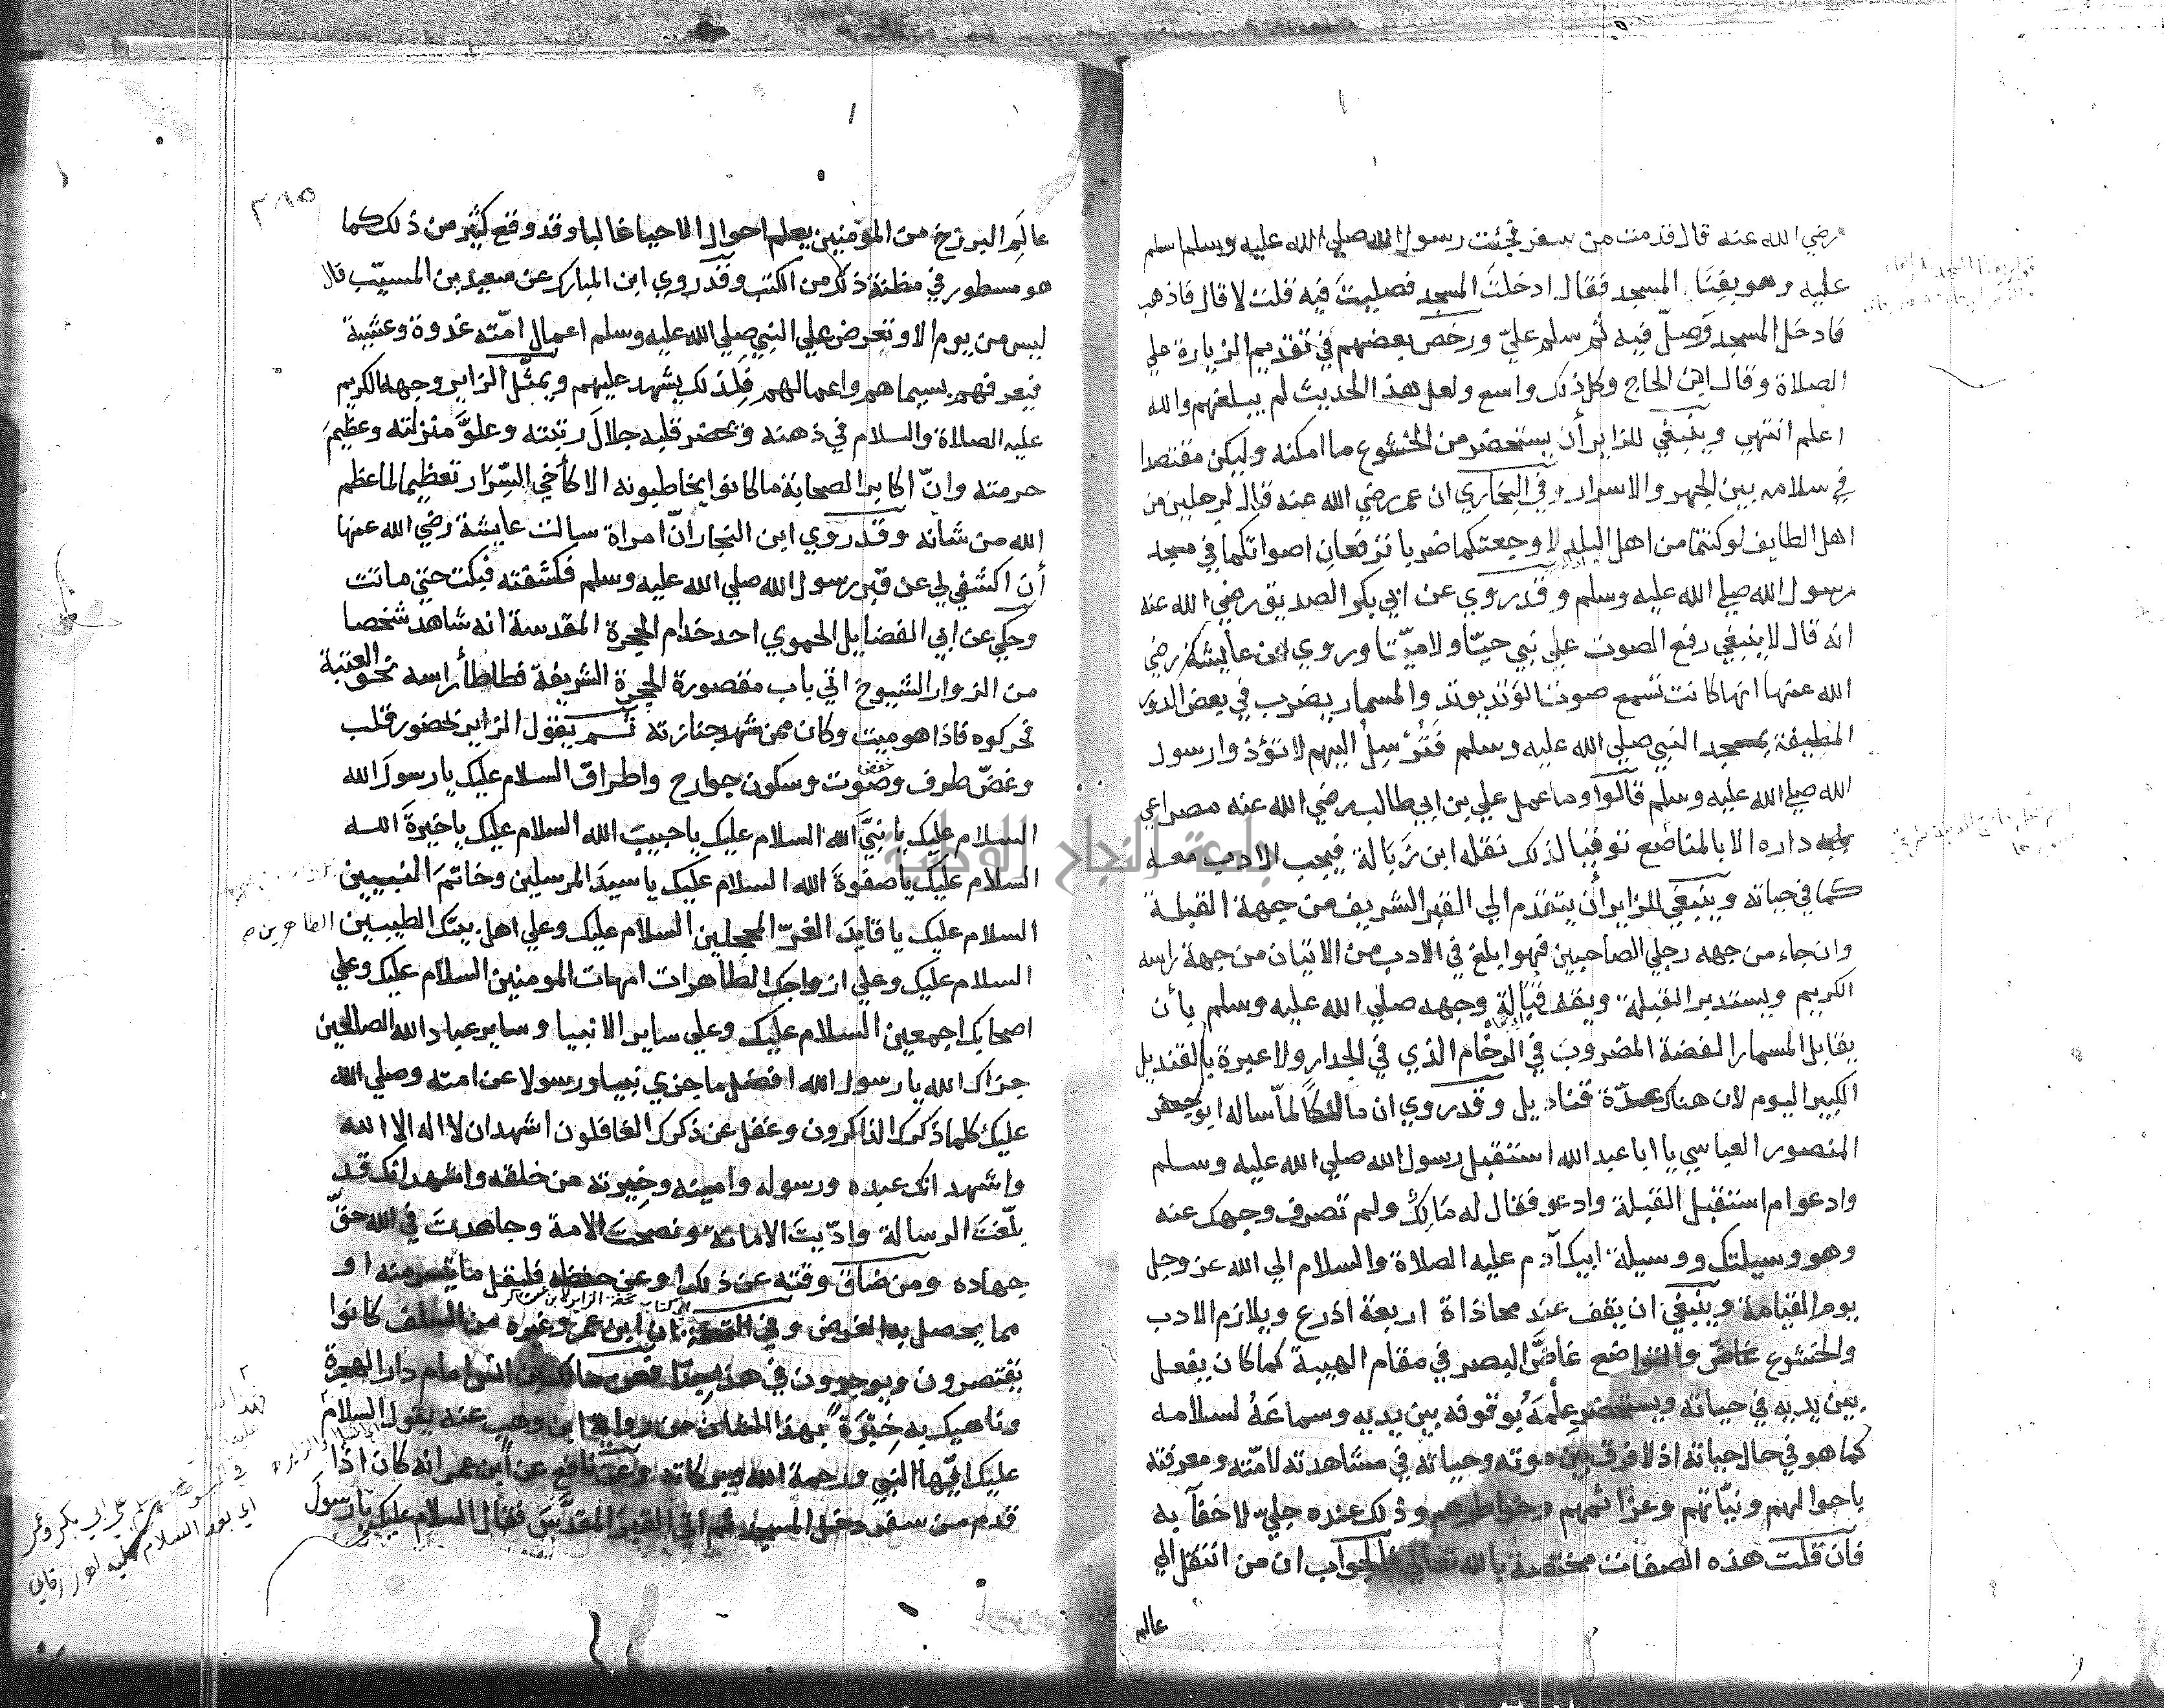 رضي الله عنه قال قدمت من سفر فجئت رسول الله صلي الله عليه وسلم اسلم
عليه وهو بفِنَا المسجد فقال ادخلتَ المسجد فصليتَ فيه قلت لا قال فاذهب
فادخل المسجد وَصلّ فيه ثم سلم عليّ ورخص بعضهم في تقديم الزيارة علي
الصلاة وقال ابن الحاج وكل ذلك واسع ولعل هذا الحديث لم يبلغهم والله
اعلم انتهي وينبغي للزاير أن يستحضر من الخشوع ما امكنه وليكن مقتصدا
في سلامه بين الجهر والاسرار وفي البخاري ان عمر رضي الله عنه قال لرجلين من
اهل الطايف لو كنتما من اهل البلد لاوجعتكما ضربا ترفعان اصواتكما في مسجد
رسول الله صلي الله عليه وسلم وقد روي عن ابي بكر الصديق رضي الله عنه
انه قال لا ينبغي رفع الصوت علي نبي حيّا ولا ميّتا وروي عن عايشة رضي
الله عنها انها كانت تسمع صوت الوتد يوتد والمسمار يضرب في بعض الدور
المطيفة بمسجد النبي صلي الله عليه وسلم فَتُرْسِلُ اليهم لا تؤذوا رسول
الله صلي الله عليه وسلم قالوا وما عمل علي بن ابي طالب رضي الله عنه مصراعي
داره الا بالمناصع توقيا لذلك نقله ابن زَبَالة فيجب الادب معه
كما في حياته وينبغي للزاير أن يتقدم الي القبر الشريف من جهة القبلة
وان جاء من جهه رجلي الصاحبين فهو ابلغ في الادب من الاتيان من جهة راسه
الكريم ويستدبر القبلة ويقف قُبَالةَ وجهه صلي الله عليه وسلم بأن
يقابل المسمار الفضة المضروبَ في الرخام الذي في الجدار ولا عبرة بالقنديل
الكبير اليوم لان هناك عدّة قناديل وقد روي ان مالكًا لمّا ساله ابو جعفر
المنصور العباسي يا ابا عبد الله استقبل رسول الله صلي الله عليه وسلم
وادعوا م استقبل القبلة وادعو فقال له مَالِكٌ ولم تصرف وجهك عنه
وهو وسيلتك ووسيلة ابيك آدم عليه الصلاة والسلام الي الله عز وجل
يوم القيامة وينبغي ان يقف عند محاذاة اربعة اذرع ويلازم الادب
والخشوع والتواضع غاضَّ البصر في مقام الهيبة كما كان يفعل
بين يديه في حياته ويستحضر عِلْمَهُ بوقوفه بين يديه وسماعَهُ لسلامه
كما هو في حال حياته اذ لا فرق بين موته وحياته في مشاهدته لامّته ومعرفته
باحوالهم ونيّاتهم وعزائمهم وخواطرهم وذلك عنده جليّ لا خفآ به
فان قلت هذه الصفات مختصة بالله تعالي فالجواب ان من انتقل الي
عالم
٣٨٥
عالَمِ البرزخ من المؤمنين يعلم احوال الاحيا غالبا وقد وقع كثير من ذلك كما
هو مسطور في مظنة ذلك من الكتب وقد روي ابن المبارك عن سعيد بن المسيّب قال
ليس من يوم الا وتعرض علي النبي صلي الله عليه وسلم اعمال امّته غدوة وعشية
فيعرفهم بسيماهم واعمالهم فلذلك يشهد عليهم ويمثّل الزاير وجهه الكريم
عليه الصلاة والسلام في ذهنه ويحضر قلبه جلالَ رتبته وعلوَّ منزلته وعظيمَ
حرمته وانّ اكابر الصحابة ما كانوا يخاطبونه الا كأخي السِّرَار تعظيما لما عظم
الله من شانه وقد روي ابن النجار انّ امراة سالت عايشة رضي الله عنها
أن اكشفي لي عن قبر رسول الله صلي الله عليه وسلم فكشفته فبكت حتي ماتت
وحكي عن ابي الفضايل الحموي احد خدام الحجرة المقدسة انه شاهد شخصا
من الزوار الشيوخ اتي باب مقصورة الحجرة الشريفة فطاطأ راسه نحو العتبة
فحركوه فاذا هو ميت وكان ممن شهد جنازته ثم يقول الزاير بحضور قلب
وغضّ طرف وصوت وسكون جوارح واطراق السلام عليك يا رسول الله
خفض
السلام عليك يا نبيَّ الله السلام عليك يا حبيب الله السلام عليك يا خيرةَ الله
السلام عليك يا صفوة الله السلام عليك يا سيدَ المرسلين وخاتمَ النبيين
السلام عليك يا قايدَ الغرّ المحجلين السلام عليك وعلي اهل بيتك الطيبين الطاهرين صح
السلام عليك وعلي ازواجك الطاهرات امهات المومنين السلام عليك وعلي
اصحابك اجمعين السلام عليك وعلي ساير الانبيا وساير عباد الله الصالحين
جزاك الله يا رسول الله افضل ما جزي نبيا ورسولا عن امته وصلي الله
عليك كلما ذكرك الذاكرون وغفل عن ذكرك الغافلون اشهد ان لا اله الا الله
واشهد انك عبده ورسوله وامينه وخِيرته من خلقه واشهد انك قد
بلّغتَ الرسالة وادّيتَ الامانة ونصحت الامة وجاهدتَ في الله حقّ
جهاده ومن ضاق وقته عن ذلك او عن حفظه فليقل ما تيسر منه او
مما يحصل به الغرض وفي التحفة ان ابن عمر وغيره من السلف كانوا
يقتصرون ويوجزون في هذا جدّا فعن مالك بن انس امام دار الهجرة
وناهيك به خِبْرَةً بهذا الشان من رواية ابن وهب عنه يقول السلام
عليك ايّها النبي ورحمة الله وبركاته وعن نافع عن ابن عمر انه كان اذا
قدم من سفر دخل المسجد ثم اتي القبر المقدَّسَ فقال السلام عليك يا رسول